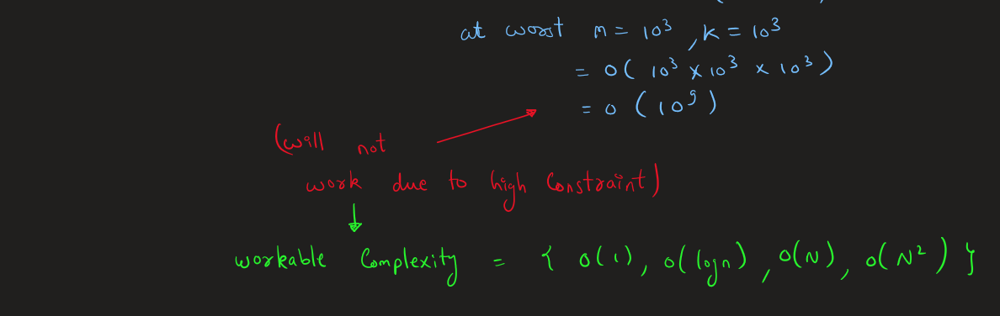 at worst n = 10³, k = 10³
= O( 10³ × 10³ × 10³ )
= O ( 10⁹ )
(will not
work due to high Constraint)
workable Complexity = { O(1), O(logn), O(N), O(N²) }